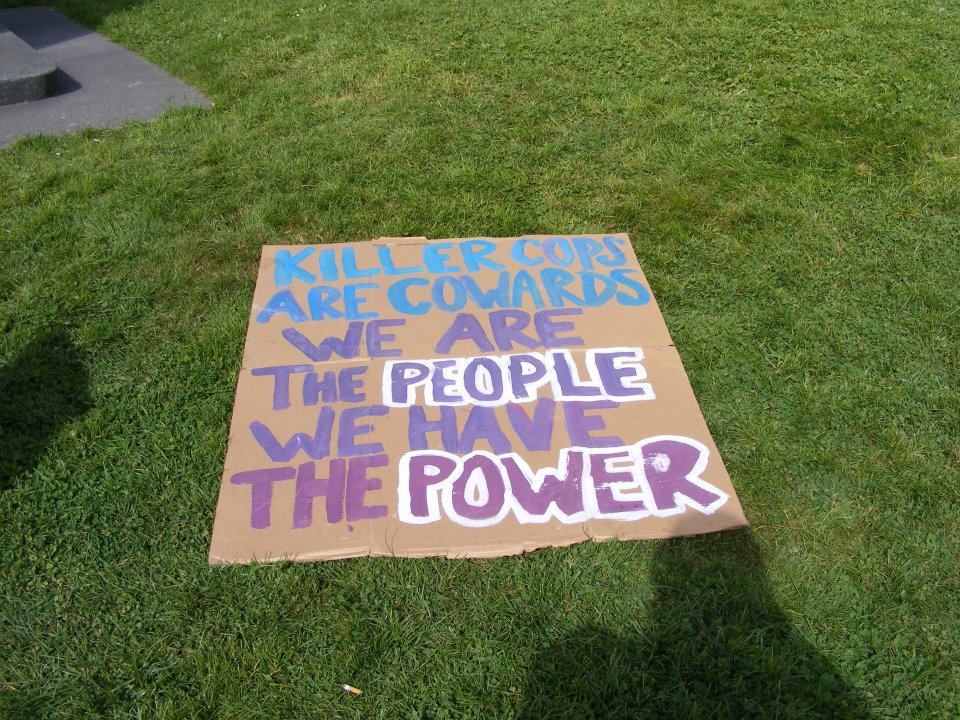 KILLER COPS
ARE COWARDS
WE ARE
THE PEOPLE
WE HAVE
THE POWER